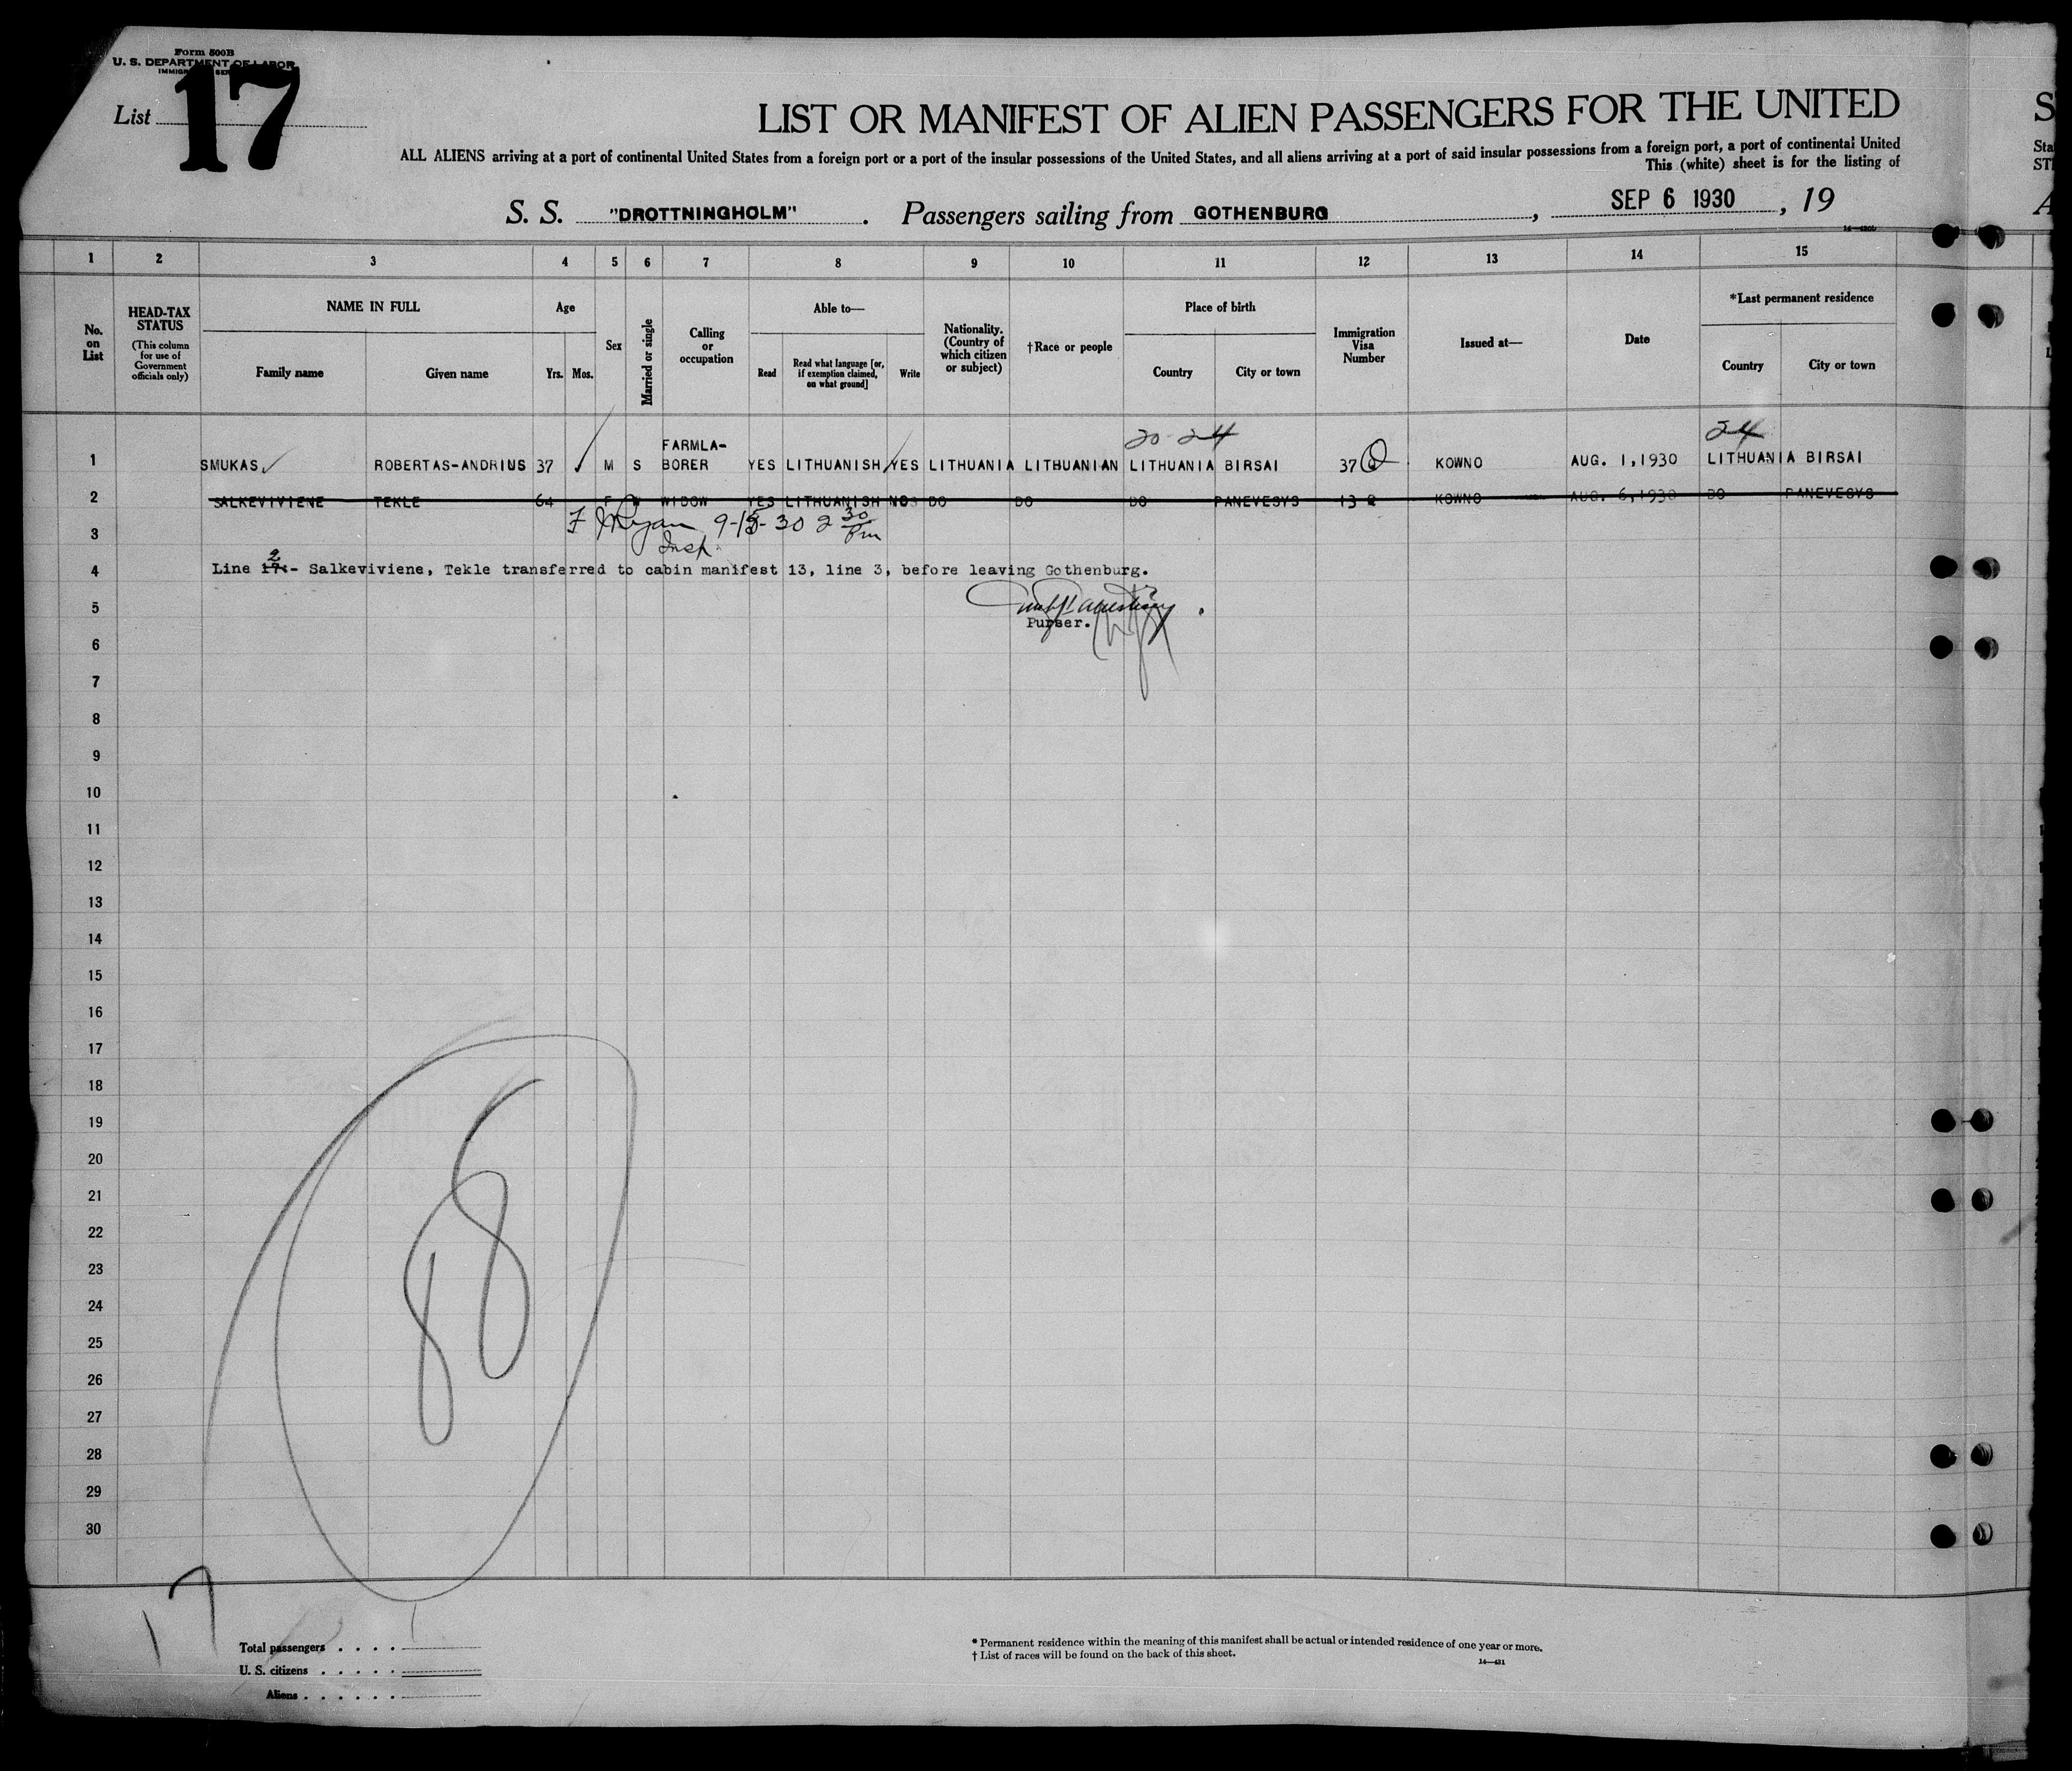 Form 500B
U. S. DEPARTMENT OF LABOR
List 17
LIST OR MANIFEST OF ALIEN PASSENGERS FOR THE UNITED
ALL ALIENS arriving at a port of continental United States from a foreign port or a port of the insular possessions of the United States, and all aliens arriving at a port of said insular possessions from a foreign port, a port of continental United
This (white) sheet is for the listing of
S. S. "DROTTNINGHOLM". Passengers sailing from GOTHENBURG, SEP 6 1930, 19
1 2 3 4 5 6 7 8 9 10 11 12 13 14 15
No. on List
HEAD-TAX STATUS
(This column for use of Government officials only)
NAME IN FULL
Family name
Given name
Age
Yrs. Mos.
Sex
Married or single
Calling or occupation
Able to—
Read
Read what language [or, if exemption claimed, on what ground]
Write
Nationality. (Country of which citizen or subject)
†Race or people
Place of birth
Country
City or town
Immigration Visa Number
Issued at—
Date
*Last permanent residence
Country
City or town
20-24 24
1 SMUKAS ROBERTAS-ANDRIUS 37 M S FARMLA-BORER YES LITHUANISH YES LITHUANIA LITHUANIAN LITHUANIA BIRSAI 37 Q KOWNO AUG. 1,1930 LITHUANIA BIRSAI
2 SALKEVIVIENE TEKLE 64 F W WIDOW YES LITHUANISH NO DO DO DO PANEVESYS 13 Q KOWNO AUG. 6,1930 DO PANEVESYS
3 F J Ryan 9-15-30 2 30 Pm
Insp.
4 Line 17:- 2 Salkeviviene, Tekle transferred to cabin manifest 13, line 3, before leaving Gothenburg.
5
Purser.
6
7
8
9
10
11
12
13
14
15
16
17
18
19
20
21
22
23
24
25
26
27
28
29
30
88
17
Total passengers . . . . 1
U. S. citizens . . . . .
Aliens . . . . . .
* Permanent residence within the meaning of this manifest shall be actual or intended residence of one year or more.
† List of races will be found on the back of this sheet.
14—431